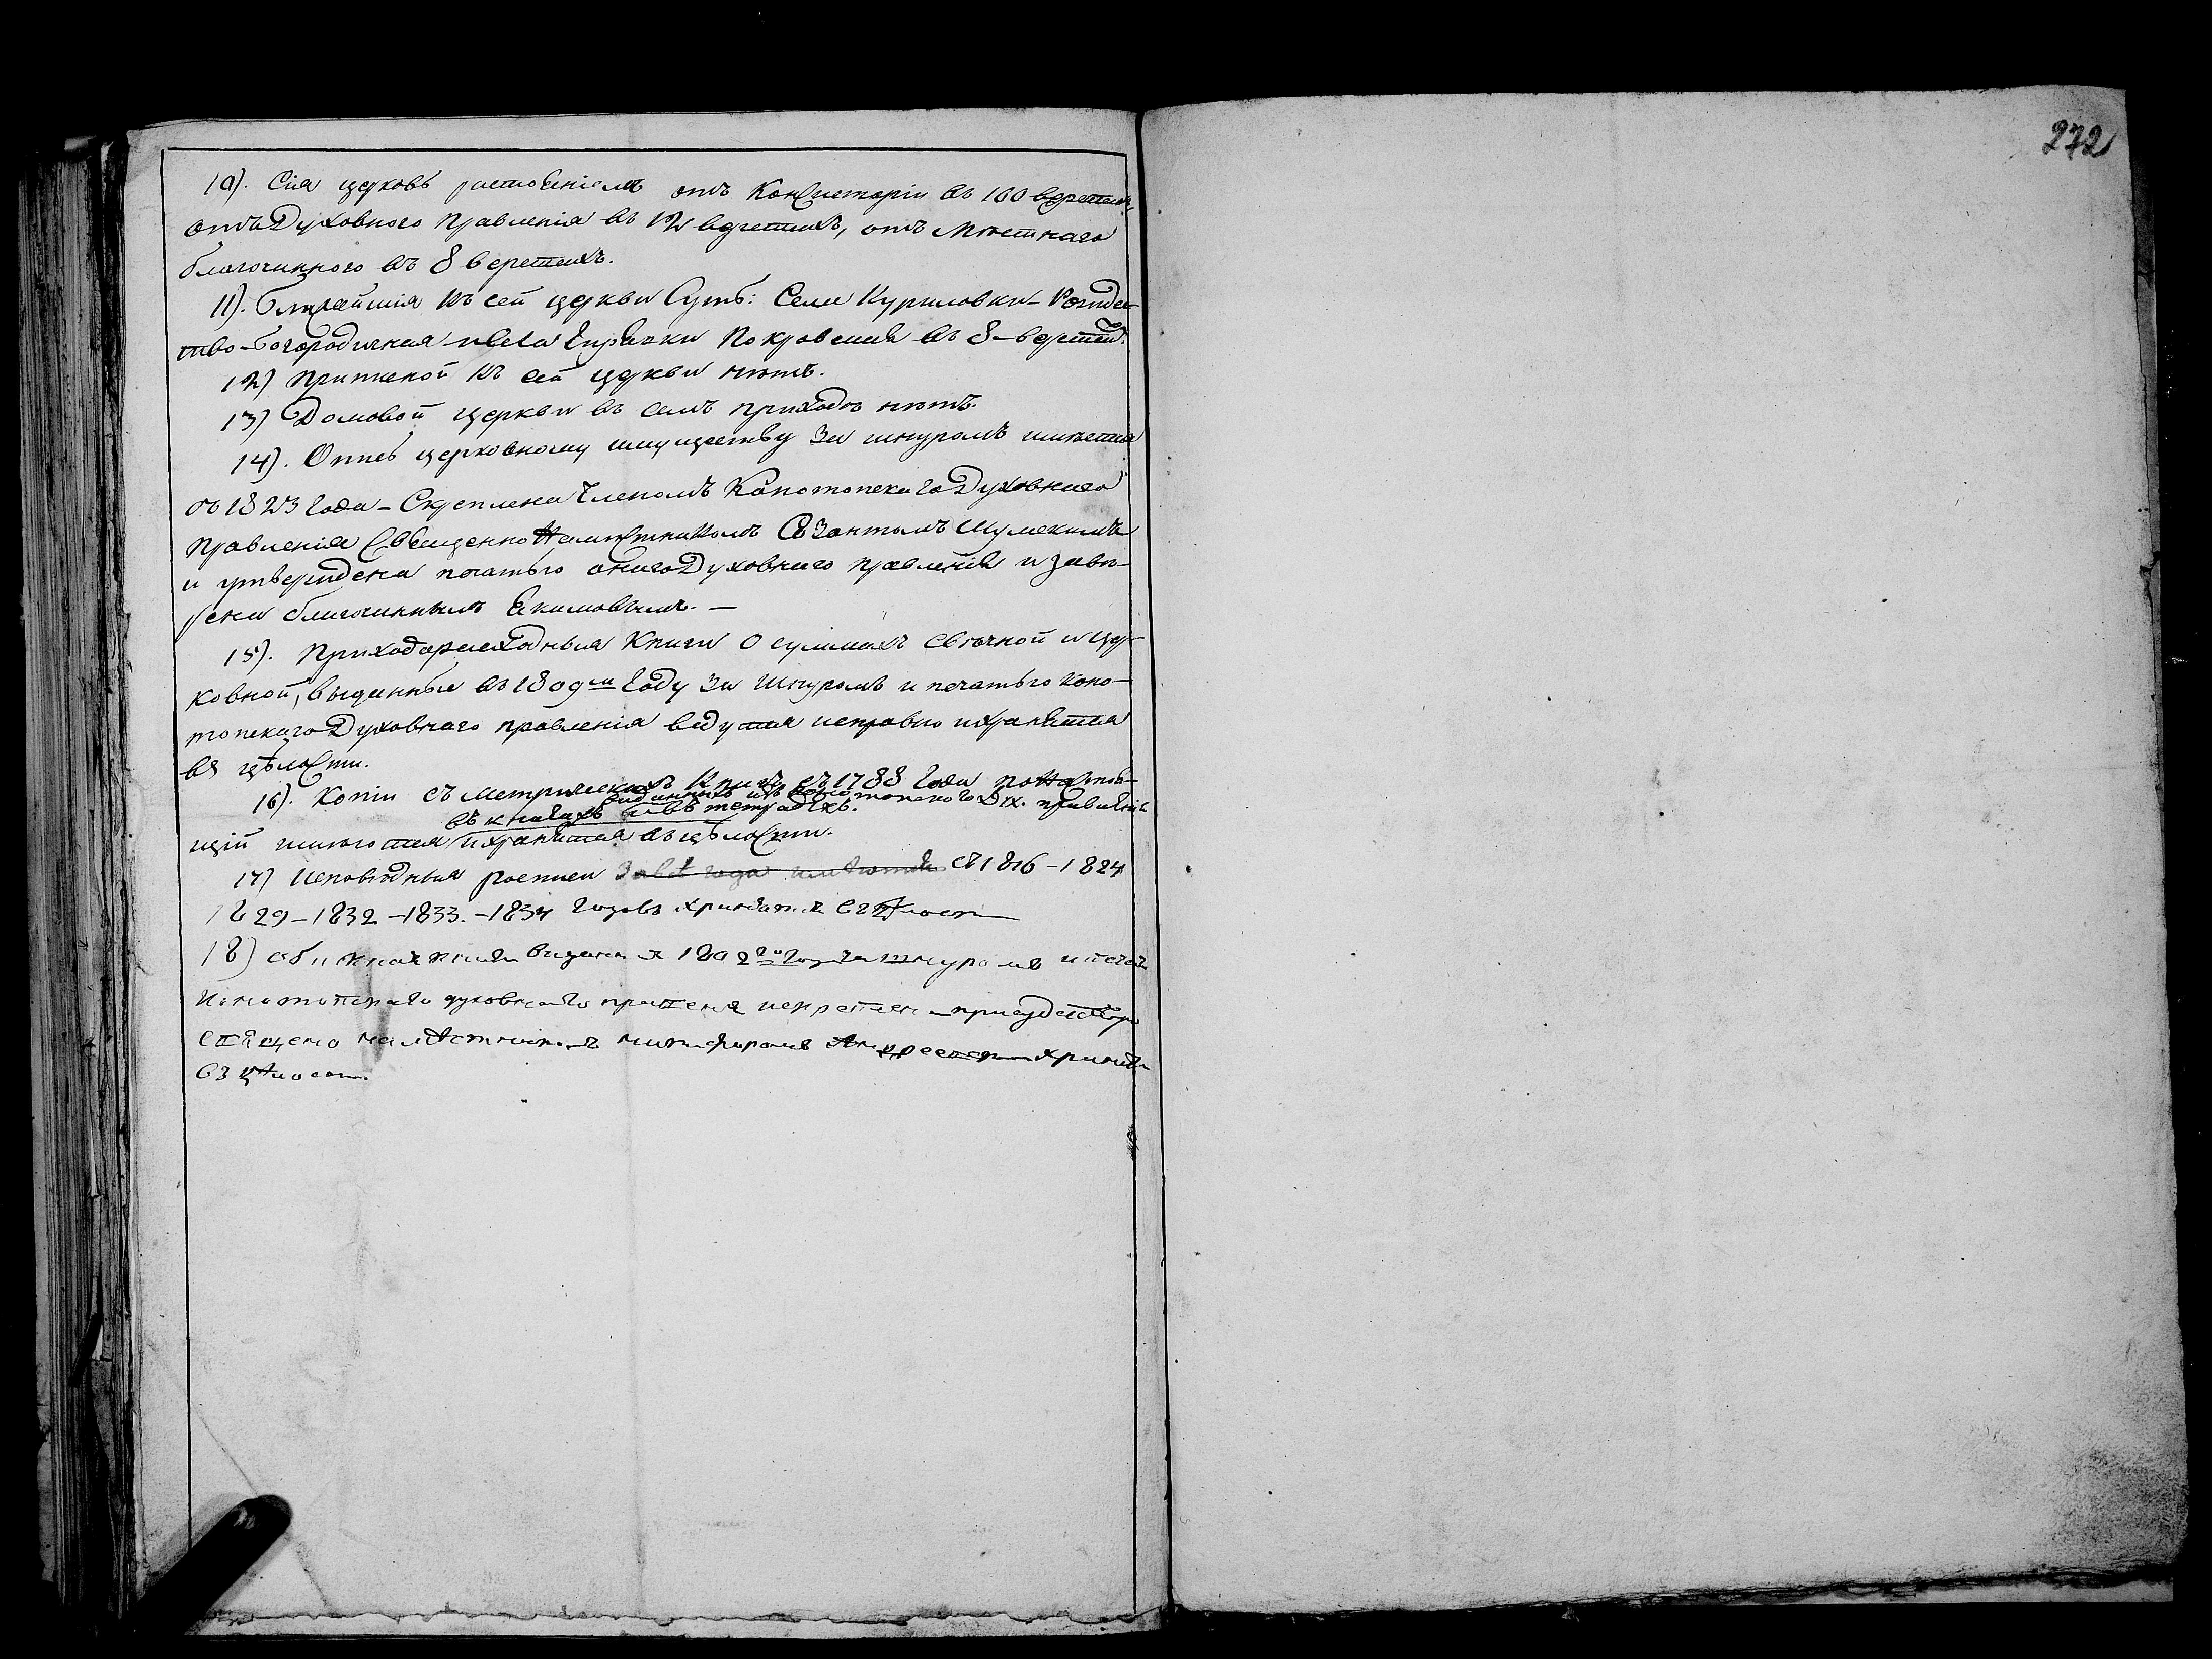 272
10). Сія церковь растояніемъ отъ Консисторіи въ 160 верстахъ,
отъ Духовного правленія въ 12 верстахъ, отъ мѣстнаго
благочинного въ 8 верстахъ.
11). Ближайшія къ сей церкви суть: Села Куриловки - Рождес-
тво-Богородичная и села Покровская въ 8-верстах.
12) Приписной къ сей церкви нѣтъ.
13) Домовой церкви въ семъ приходѣ нѣтъ.
14). Опись церковному имуществу за шнуромъ имѣется
съ 1823 года - Скреплена Членомъ Конотопскаго Духовнаго
правленія Священно Намѣстникомъ Шумскимъ
и утверждена печатью онаго Духовнаго правленія и завѣ-
рена благочиннымъ Екимовымъ. —
15). Приходорасходныя Книги о суммахъ свѣчной и цер-
ковной, выданные въ 1809м году за шнуромъ и печатью Коно-
топскаго Духовнаго правленія ведутся исправно и хранятся
въ цѣлости.
16). Копіи съ метрическихъ Книгъ съ 1788 года по настоя-
выданныхъ изъ Конотопского Дух. правленія
въ книгахъ тетрадехъ.
щій имѣются и хранятся въ цѣлости.
17) Исповѣдныя росписи года имѣются съ 1816 - 1824
1829 - 1832 - 1833. - 1834 годовъ хранятся
18) Обыскная книга выдана 1802го года за шнуромъ и печат
Конотопскаго духовнаго
намѣстникомъ Никифоромъ хранитя
въ цѣлост.